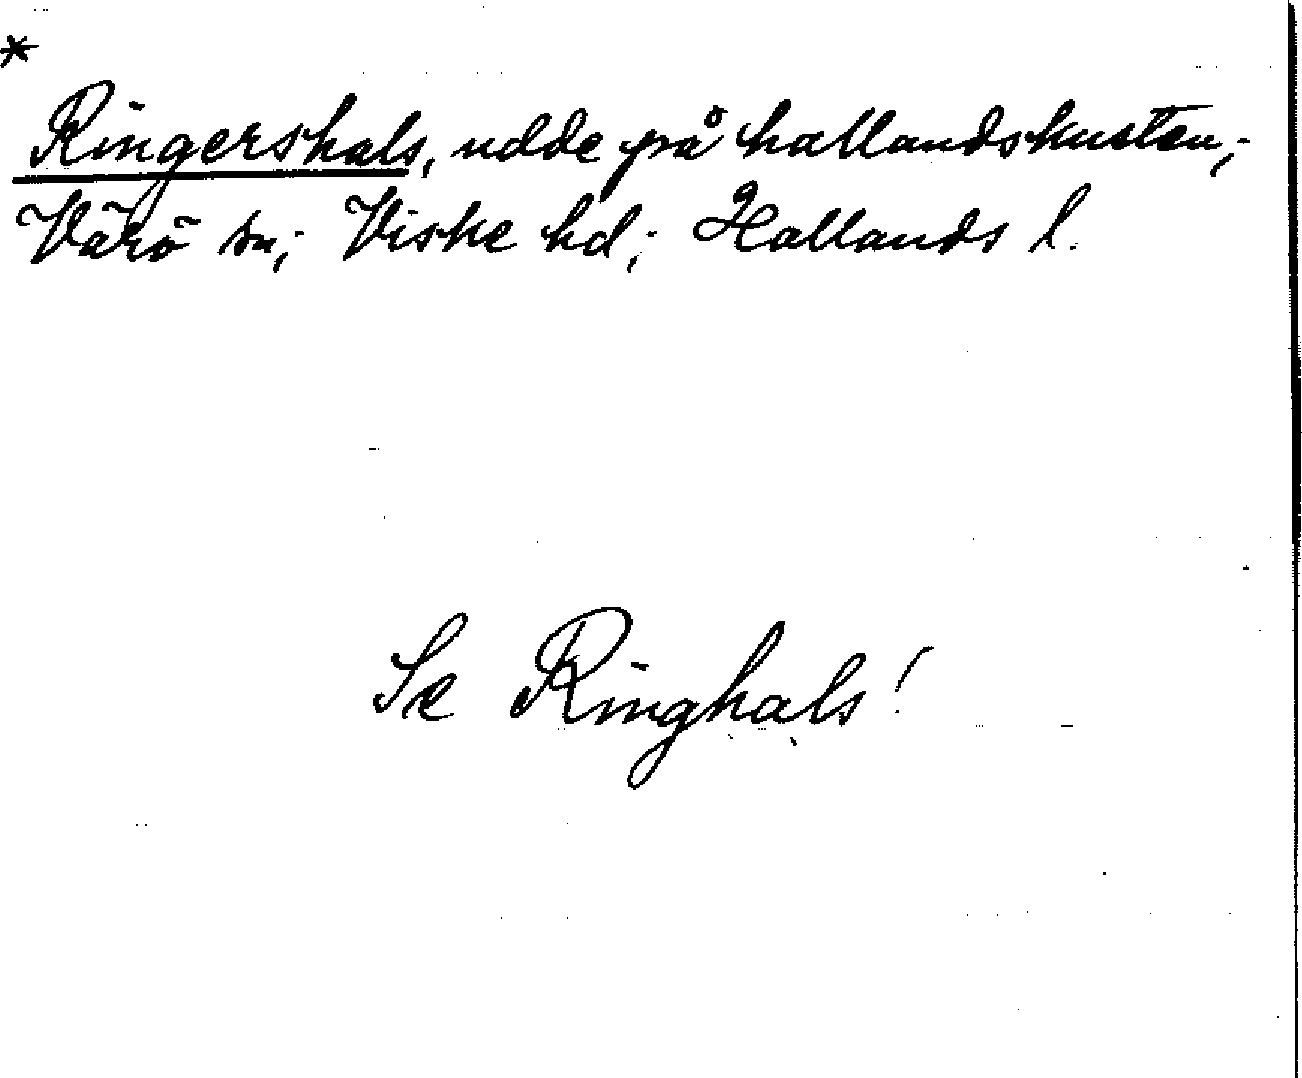 *
Ringershals, udde på hallandskusten;
Värö sn; Viske hd; Hallands l.
Se Ringhals!